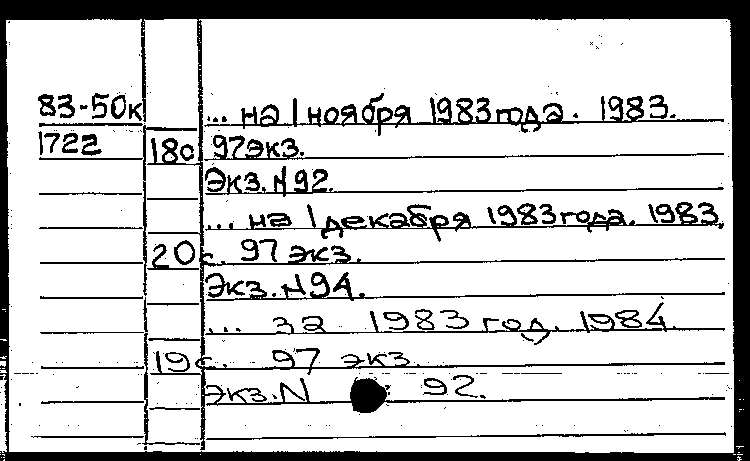 83-50к ... на 1 ноября 1983 года. 1983.
1722 18с 97экз.
Экз. N 92.
... на 1 декабря 1983 года. 1983.
20с. 97 экз.
Экз. N94.
... за 1983 год. 1984
19с. 97 экз.
Экз. N 92.